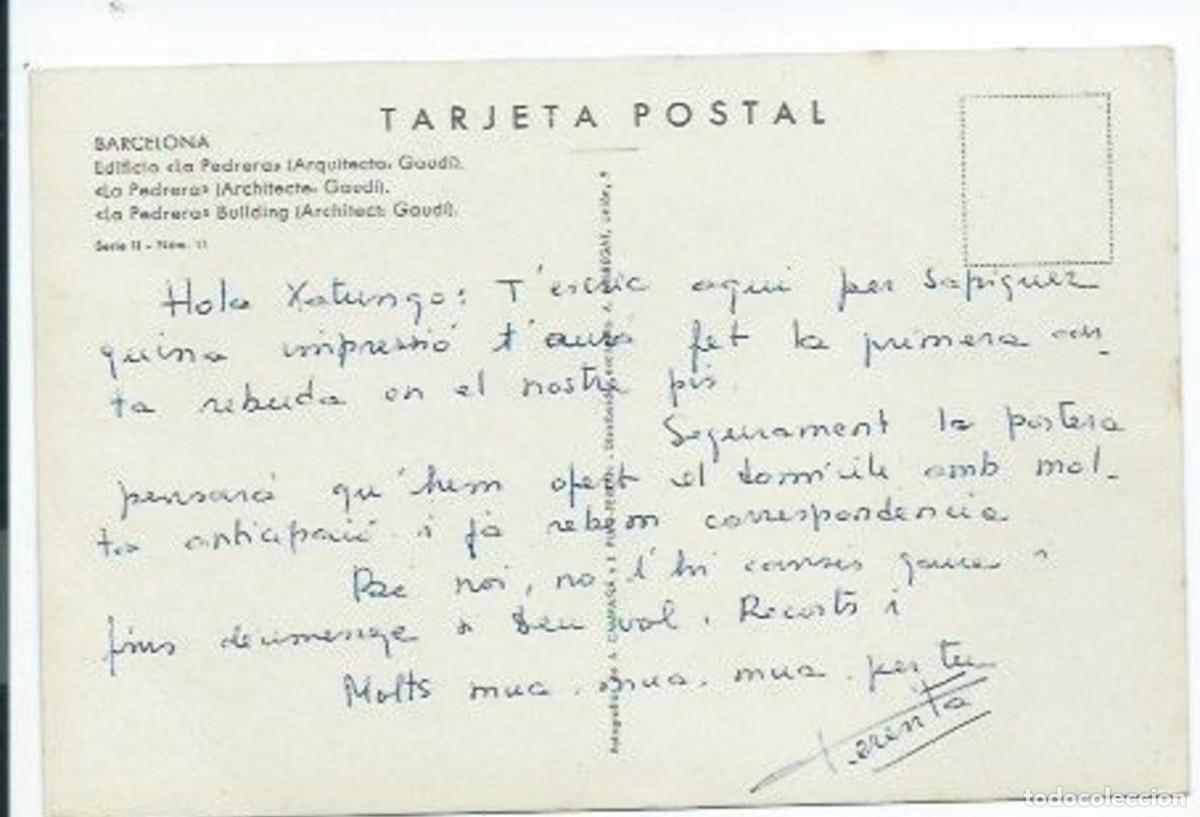 TARJETA POSTAL
BARCELONA
Edificio «La Pedrera» (Arquitecto: Gaudí).
«La Pedrera» (Architecte: Gaudí).
«La Pedrera» Building (Architect: Gaudí).
Serie II - Núm. 11
Hola Xatungo: T'escric aquí per sapiguer
quina impressió t'aura fet la primera car-
ta rebuda en el nostre pis.
Segurament la portera
pensará qu'hem ofert el domicile amb mol-
ta anticipació i ja rebem correspondencia
Bé noi, no t'hi cansis gaire i
fins diumenge si Deu vol. Records i
Molts mua. mua. mua. per tu
Terenita
todocoleccion